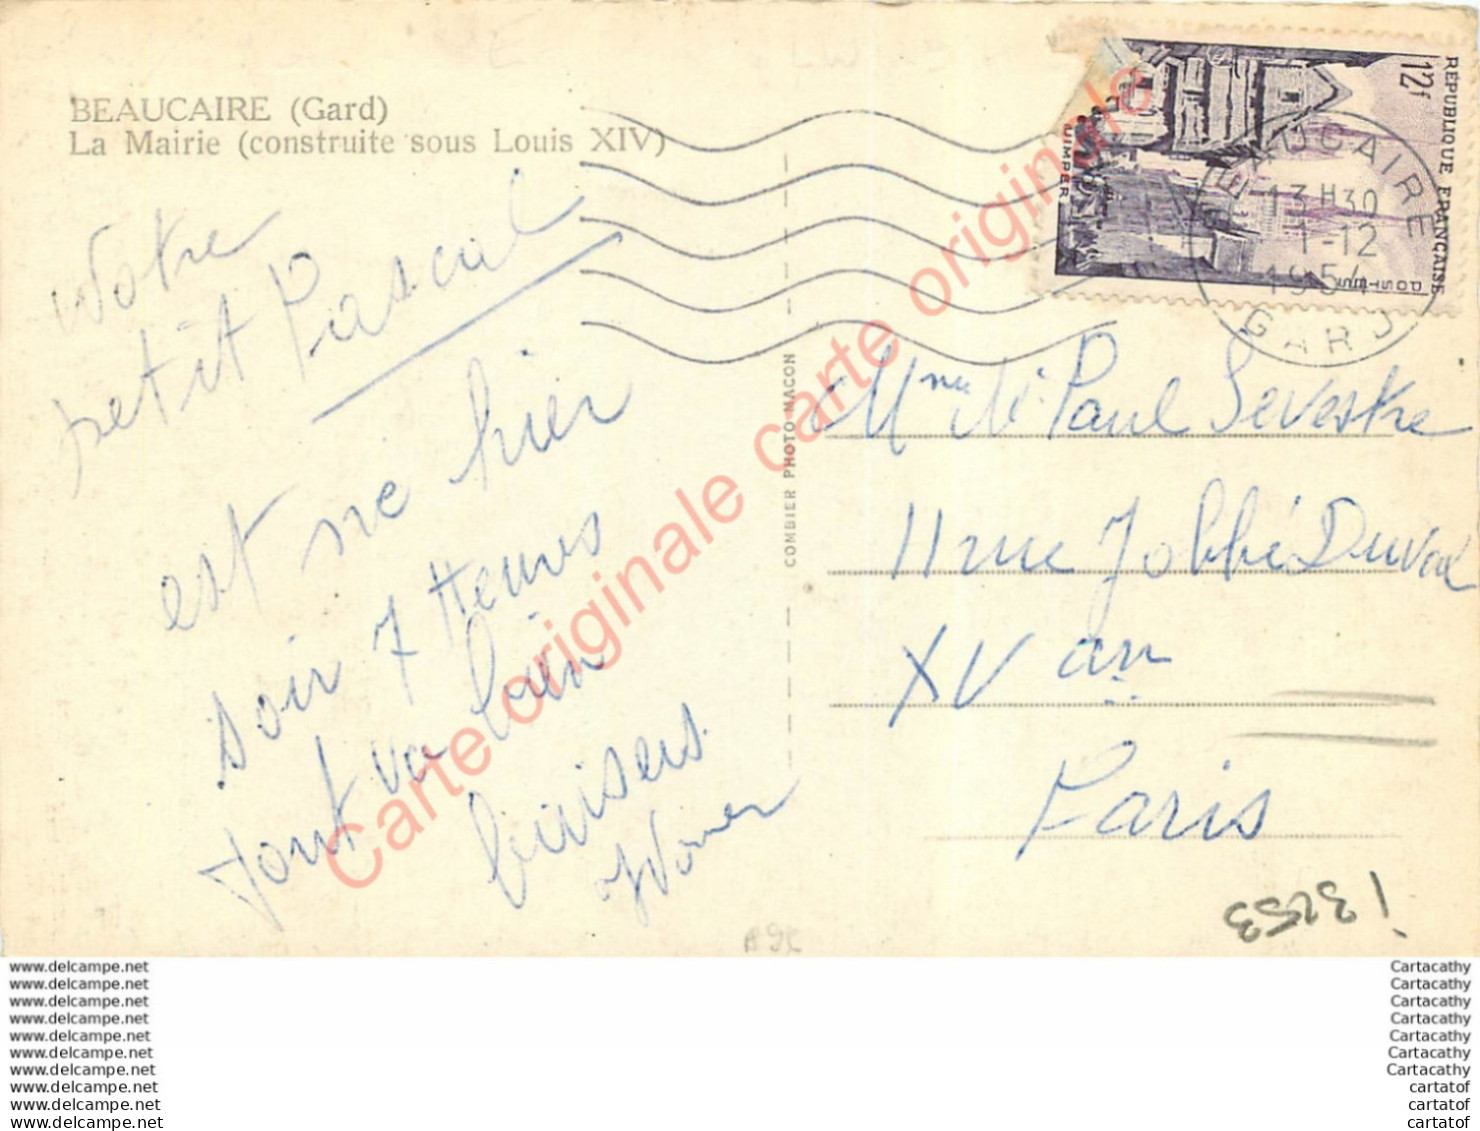 BEAUCAIRE (Gard)
La Mairie (construite sous Louis XIV)
Notre
petit Pascal
est né hier
soir 7 Heures
Tout va bien
baisers
COMBIER PHOTO MACON
RÉPUBLIQUE FRANÇAISE
12f
POSTES
QUIMPER
BEAUCAIRE
13 H 30
1-12
195
GARD
Mme M. Paul Sevestre
11 rue Jobbé Duval
XV arr
Paris
13253
Carte originale carte originale
www.delcampe.net
www.delcampe.net
www.delcampe.net
www.delcampe.net
www.delcampe.net
www.delcampe.net
www.delcampe.net
www.delcampe.net
www.delcampe.net
www.delcampe.net
Cartacathy
Cartacathy
Cartacathy
Cartacathy
Cartacathy
Cartacathy
Cartacathy
cartatof
cartatof
cartatof